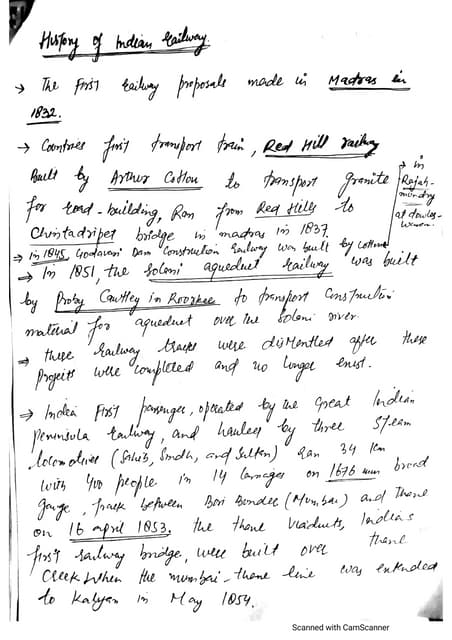 History of Indian Railway.
→ The first railway proposals made in Madras in
1832.
→ Countries first transport train, Red Hill railway
Built by Arthur Cotton to transport granite
→ in
Rajah-
mundry
at dowles-
for road-building, Ran from Red Hills to
Chintadripet bridge in madras in 1837.
→ in 1845, Godavari Dam Construction Railway was built by cotton
→ In 1851, the Soloni aqueduct railway was built
by Proby Cautley in Roorkee to transport Construction
material for aqueduct over the Solani river.
→ these railway tracks were dismentled after these
Projects were completed and no longer exist.
→ India First passenger, operated by the Great Indian
Peninsula Railway, and hauled by three steam
locomotives (Sahib, Sindh, and Sultan) Ran 34 km
with 400 people in 14 carriages on 1676 mm broad
gauge, track between Bori Bunder (Mumbai) and Thane
on 16 april 1853. the thane viaducts, India's
first railway bridge, were built over thane
Creek When the mumbai-thane line was extended
to Kalyan in May 1854.
Scanned with CamScanner